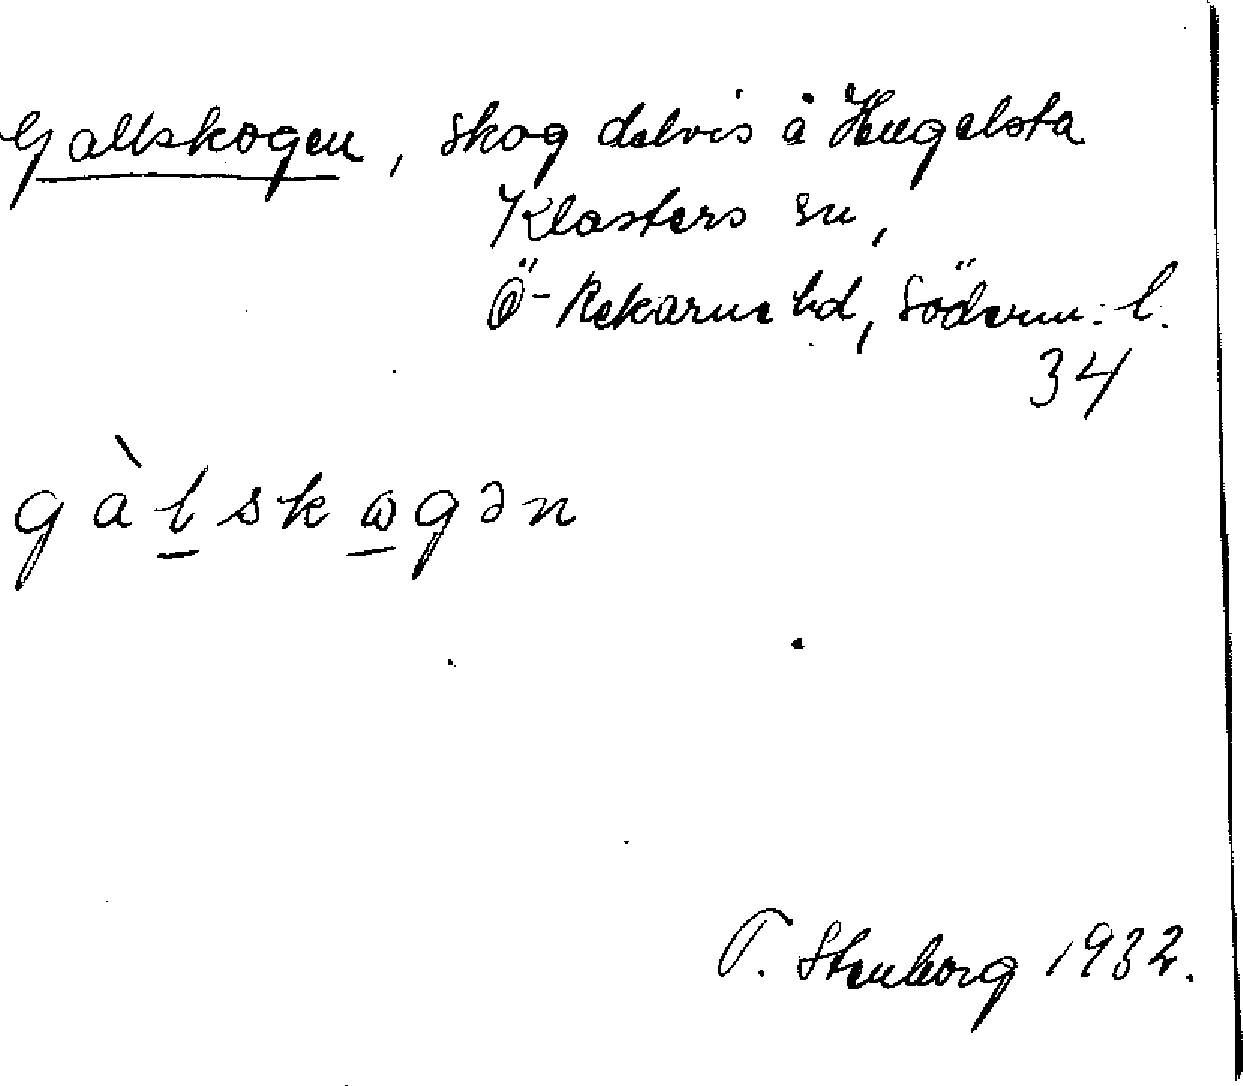 Gallskogen, skog delvis å Hugelsta
Klosters sn,
Ö-Rekarne hd, Söderm. l.
34
gàlskωgən
T. Stenborg 1932.